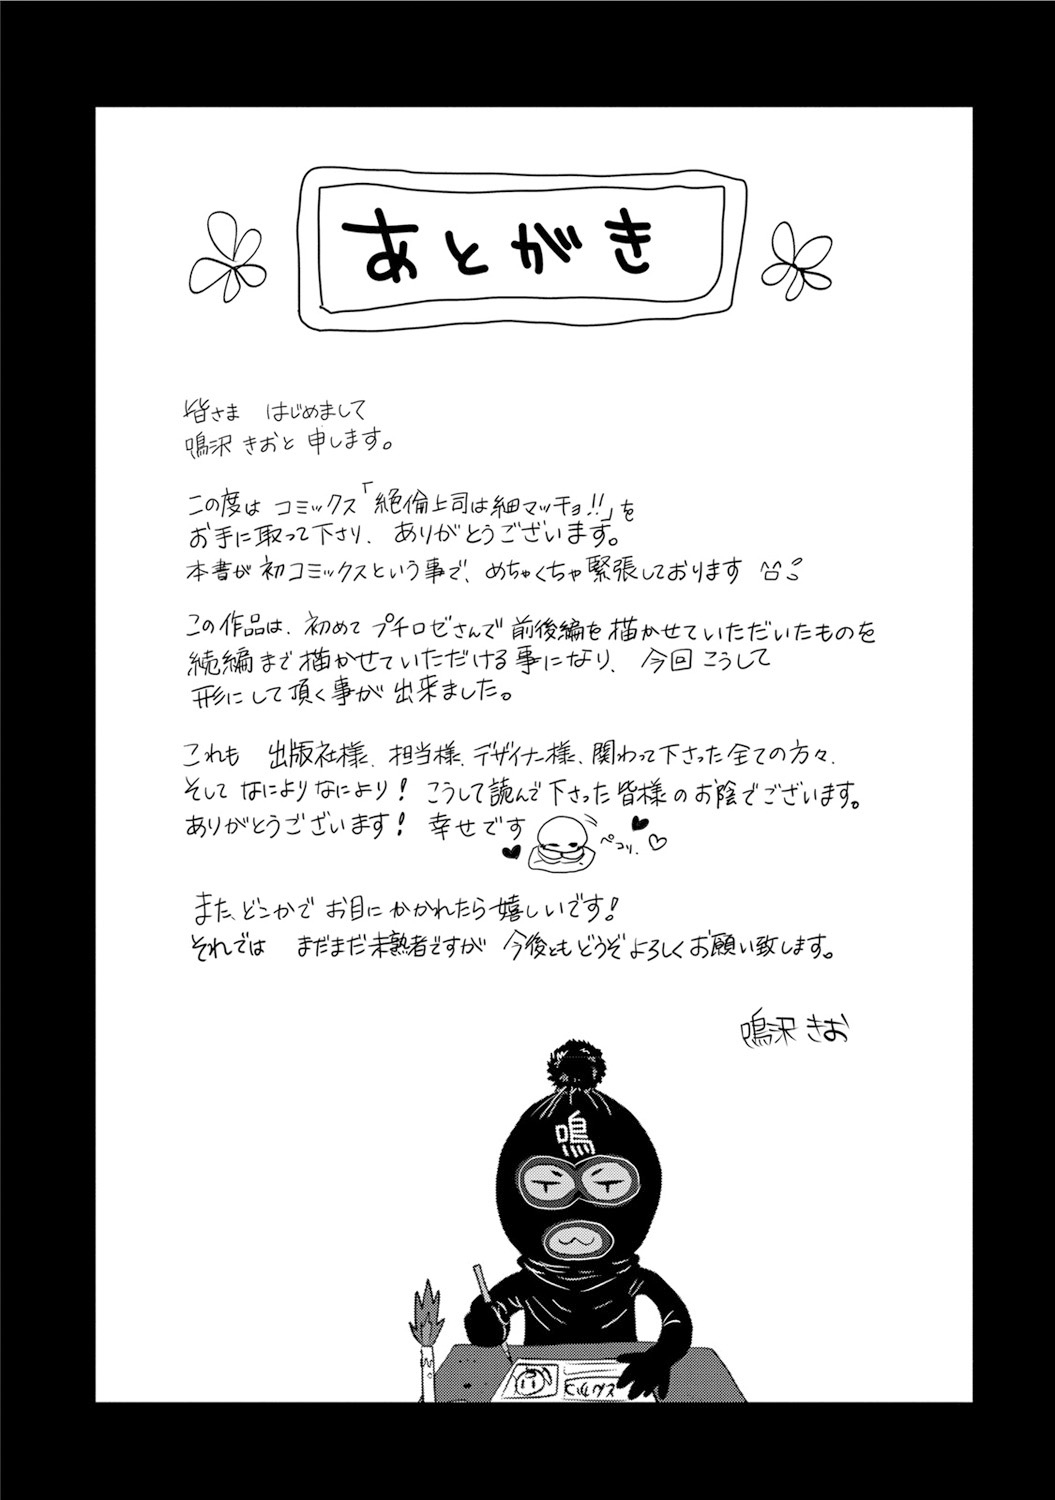 あとがき
皆さま はじめまして
鳴沢 きおと 申します。
この度は コミックス「絶倫上司は細マッチョ!!」を
お手に取って下さり、ありがとうございます。
本書が 初コミックスという事で、めちゃくちゃ緊張しております
この作品は、初めて プチロゼさんで 前後編を描かせていただいたものを
続編まで描かせていただける事になり、今回こうして
形にして頂く事が出来ました。
これも 出版社様、担当様、デザイナー様、関わって下さった全ての方々、
そして なによりなにより! こうして読んで下さった皆様のお陰でございます。
ありがとうございます! 幸せです
ペコリ、
また、どこかで お目にかかれたら嬉しいです!
それでは まだまだ未熟者ですが 今後ともどうぞよろしくお願い致します。
鳴沢 きお
鳴